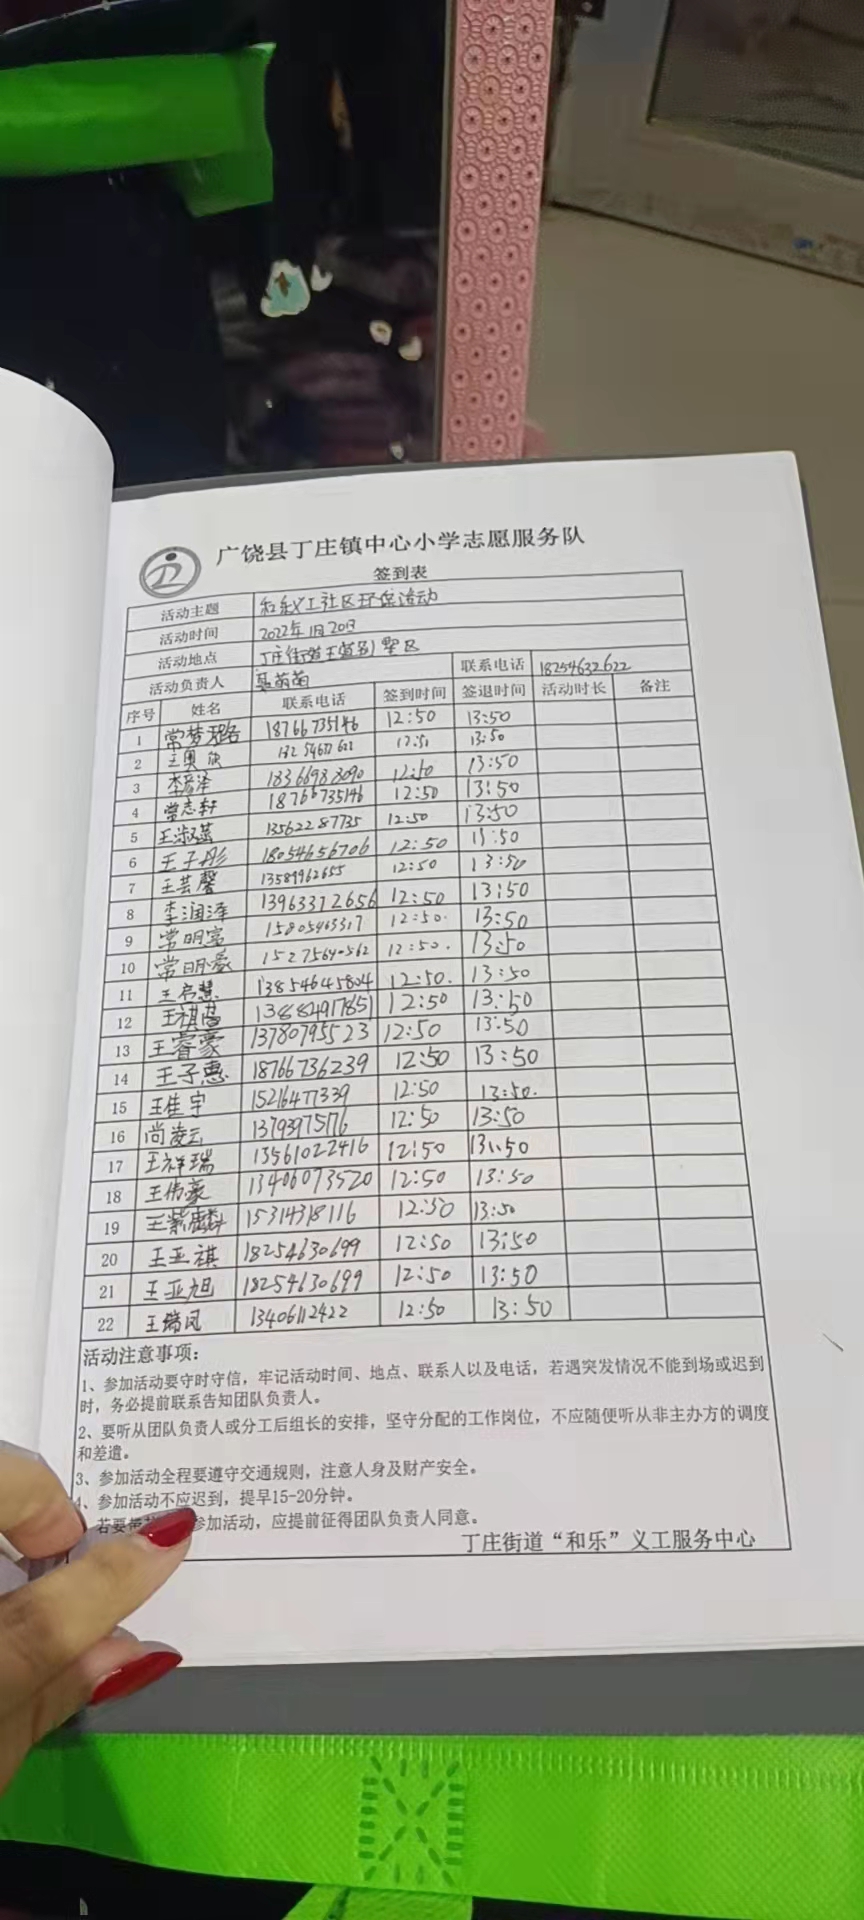 广饶县丁庄镇中心小学志愿服务队
签到表
活动主题 和乐义工社区环保活动
活动时间 2022年1月20日
活动地点 丁庄街道王道别墅区
活动负责人 联系电话 18254632622
序号 姓名 联系电话 签到时间 签退时间 活动时长 备注
1 常梦璐 18766735146 12:50 13:50
2 王奥欣 13:50
3 李彦泽 12:50 13:50
4 常志轩 18766735146 12:50 13:50
5 王淑菡 13562287735 12:50 13:50
6 王子彤 18054656706 12:50 13:50
7 王芸馨 13589962655 12:50 13:50
8 李润泽 13963312656 12:50 13:50
9 常明宇 15805463317 12:50. 13:50
10 常明豪 15275640562 12:50. 13:50
11 王启慧 13854645804 12:50. 13:50
12 12:50 13:50
13 王睿豪 13780795523 12:50 13:50
14 王子惠 18766736239 12:50 13:50
15 王佳宇 15216477339 12:50 13:50.
16 尚凌云 12:50 13:50
17 王祥瑞 13561022416 12:50 13:50
18 王伟豪 13406073520 12:50 13:50
19 15314318116 12:50 13:50
20 王亚祺 18254630699 12:50 13:50
21 王亚旭 18254630699 12:50 13:50
22 王瑞凤 13406112422 12:50 13:50
活动注意事项：
1、参加活动要守时守信，牢记活动时间、地点、联系人以及电话，若遇突发情况不能到场或迟到
时，务必提前联系告知团队负责人。
2、要听从团队负责人或分工后组长的安排，坚守分配的工作岗位，不应随便听从非主办方的调度
和差遣。
3、参加活动全程要遵守交通规则，注意人身及财产安全。
4、参加活动不应迟到，提早15-20分钟。
若要带 参加活动，应提前征得团队负责人同意。
丁庄街道“和乐”义工服务中心